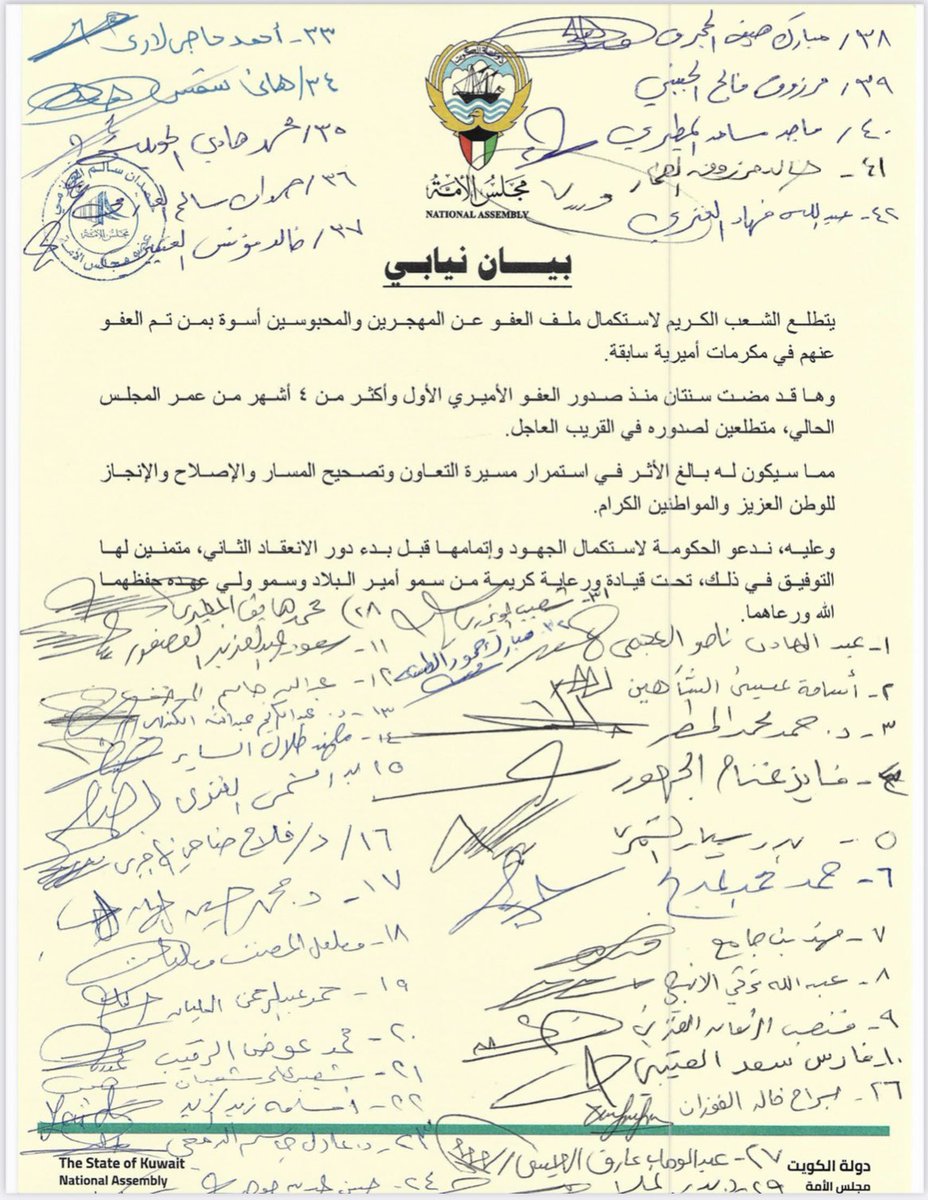 ٣٣- أحمد حاجي لاري
٣٤/ هاني شمس
٣٥/ محمد هادي
٣٦/ حمدان سالم
٣٧/ خالد مؤنس
٣٨/ مبارك هيف
٣٩/ مرزوق فالح
٤٠/ ماجد مساعد المطيري
٤١-
٤٢- عبدالله فهاد العنزي
مجلس الأمة
NATIONAL ASSEMBLY
بيـــان نيابي
يتطلع الشعب الكريم لاستكمال ملف العفو عن المهجرين والمحبوسين أسوة بمن تم العفو
عنهم في مكرمات أميرية سابقة.
وها قد مضت سنتان منذ صدور العفو الأميري الأول وأكثر من ٤ أشهر من عمر المجلس
الحالي، متطلعين لصدوره في القريب العاجل.
مما سيكون له بالغ الأثر في استمرار مسيرة التعاون وتصحيح المسار والإصلاح والإنجاز
للوطن العزيز والمواطنين الكرام.
وعليه، ندعو الحكومة لاستكمال الجهود وإتمامها قبل بدء دور الانعقاد الثاني، متمنين لها
التوفيق في ذلك، تحت قيادة ورعاية كريمة من سمو أمير البلاد وسمو ولي عهده حفظهما
الله ورعاهما.
١- عبد الهادي ناصر العجمي
٢- أسامة عيسى الشاهين
٣- د. حمد محمد المطر
فايز غنام الجمهور
٥- بدر سيار الشمري
٦- حمد محمد
٧- مهند بن جامع
٨- عبدالله تركي الأنبعي
٩-
١٠- فارس سعد العتيبي
٢٦- جراح خالد الفوزان
٢٧- عبدالوهاب عارف العيسى
٢٩-
٣١- شعيب
٣٢- مبارك حمود
٢٨) محمد هايف المطيري
١١- سعود عبدالعزيز العصفور
١٢- عبدالله جاسم
١٣- د. عبدالكريم عبدالله الكندري
١٤- مهند طلال الساير
١٥
١٦/ د/ فلاح ضاحي الهاجري
١٧- د. محمد حسين
١٨-
١٩- حمد عبدالرحمن العليان
٢٠- محمد عوض الرقيب
٢١- شعيب علي شعبان
٢٢- أسامة زيد الزيد
٢٣- د. عادل جاسم الدمخي
٢٤-
The State of Kuwait
National Assembly
دولة الكويت
مجلس الأمة